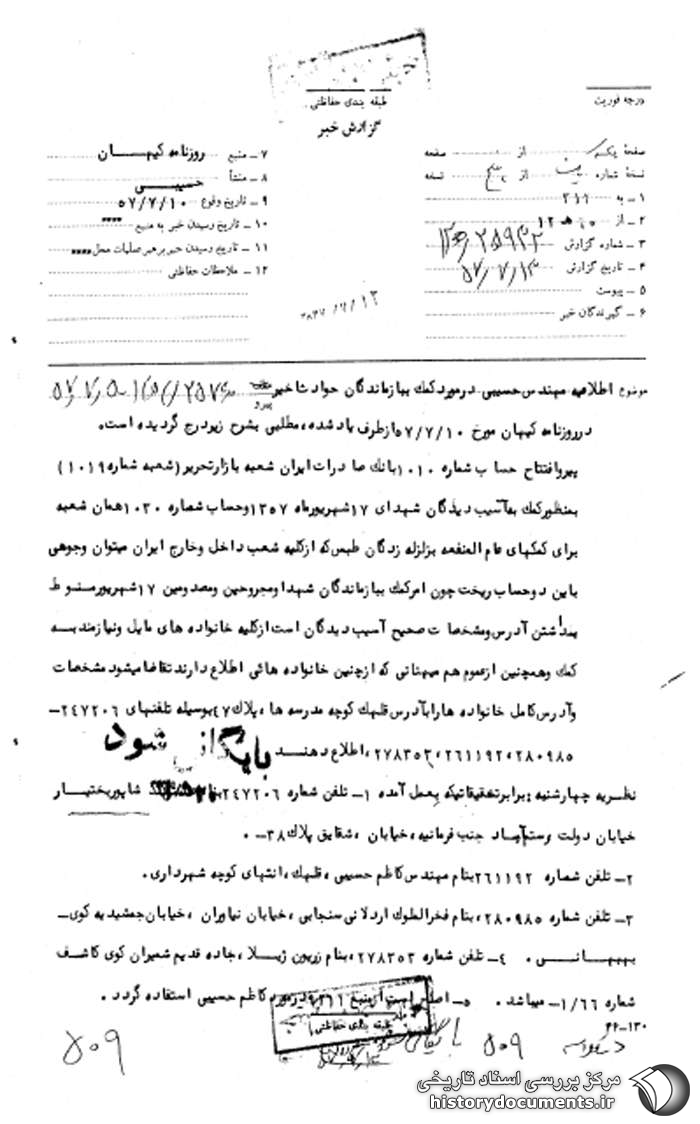 طبقه بندی حفاظتی
گزارش خبر
درجه فوریت
صفحهٔ یک از صفحه
نسخهٔ شماره از پنج نسخه
۱ ـ به ۳۱۱
۲ ـ از ۱۲ هـ ۱۰
۳ ـ شماره گزارش ۲۵۹۴۲
۴ ـ تاریخ گزارش ۵۷/۷/۱۳
۵ ـ پیوست
۶ ـ گیرندگان خبر
۷ ـ منبع روزنامه کیهـــان
۸ ـ منشأ حسیبـــی
۹ ـ تاریخ وقوع ۵۷/۷/۱۰
۱۰ ـ تاریخ رسیدن خبر به منبع
۱۱ ـ تاریخ رسیدن خبر برهبر عملیات محل
۱۲ ـ ملاحظات حفاظتی
موضوع اطلاعیه مهندس حسیبی درمورد کمک ببازماندگان حوادث اخیر
پیرو
درروزنامه کیهان مورخ ۵۷/۷/۱۰ ازطرف یادشده، مطلبی بشرح زیردرج گردیده است.
پیروافتتاح حساب شماره ۱۰۱۰ بانک صادرات ایران شعبه بازارتحریر (شعبه شماره ۱۰۱۹)
بمنظورکمک بهآسیب دیدگان شهدای ۱۷ شهریورماه ۱۳۵۷ وحساب شماره ۱۰۳۰ همان شعبه
برای کمکهای عام المنفعه بزلزله زدگان طبس که ازکلیه شعب داخل وخارج ایران میتوان وجوهی
باین دوحساب ریخت چون امرکمک ببازماندگان شهدا ومجروحین ومصدومین ۱۷ شهریورمنوط
بداشتن آدرس ومشخصات صحیح آسیب دیدگان است ازکلیه خانواده های مایل ونیازمند بـه
کمک وهمچنین ازعموم هم میهنانی که ازچنین خانواده هائی اطلاع دارند تقاضا میشود مشخصات
وآدرس کامل خانواده هارا بآدرس قلهک کوچه مدرسه ها، پلاک ۴۷ بوسیله تلفنهای ۲۴۷۲۰۶ ـ
۲۸۰۹۸۵، ۲۶۱۱۹۲، ۲۷۸۳۵۳، اطلاع دهنـد
بایگانی شود
نظریه چهارشنبه: برابرتحقیقاتیکه بعمل آمده ۱ـ تلفن شماره ۲۴۷۲۰۶ بنام شاپوربختیار
خیابان دولت رستم آباد جنب فرمانیه، خیابان، شقایق پلاک ۳۸ ـ .
۲ـ تلفن شماره ۲۶۱۱۹۲ بنام مهندس کاظم حسیبی، قلهک، انتهای کوچه شهرداری.
۳ـ تلفن شماره ۲۸۰۹۸۵، بنام فخرالملوک اردلانی سنجابی، خیابان نیاوران، خیابان جمشیدیه کوی ـ
بهبهـانـی. ۴ـ تلفن شماره ۲۷۸۳۵۳، بنام زریون ژیـلا، جاده قدیم شمیران کوی کاشف
شماره ۱/۶۶ ـ میباشد. ۵ـ درمورد کاظم حسیبی استفاده گردد.
طبقه بندی حفاظتی
۴۴-۱۳۰
۵۰۹
۵۰۹
مرکز بررسی اسناد تاریخی
historydocuments.ir